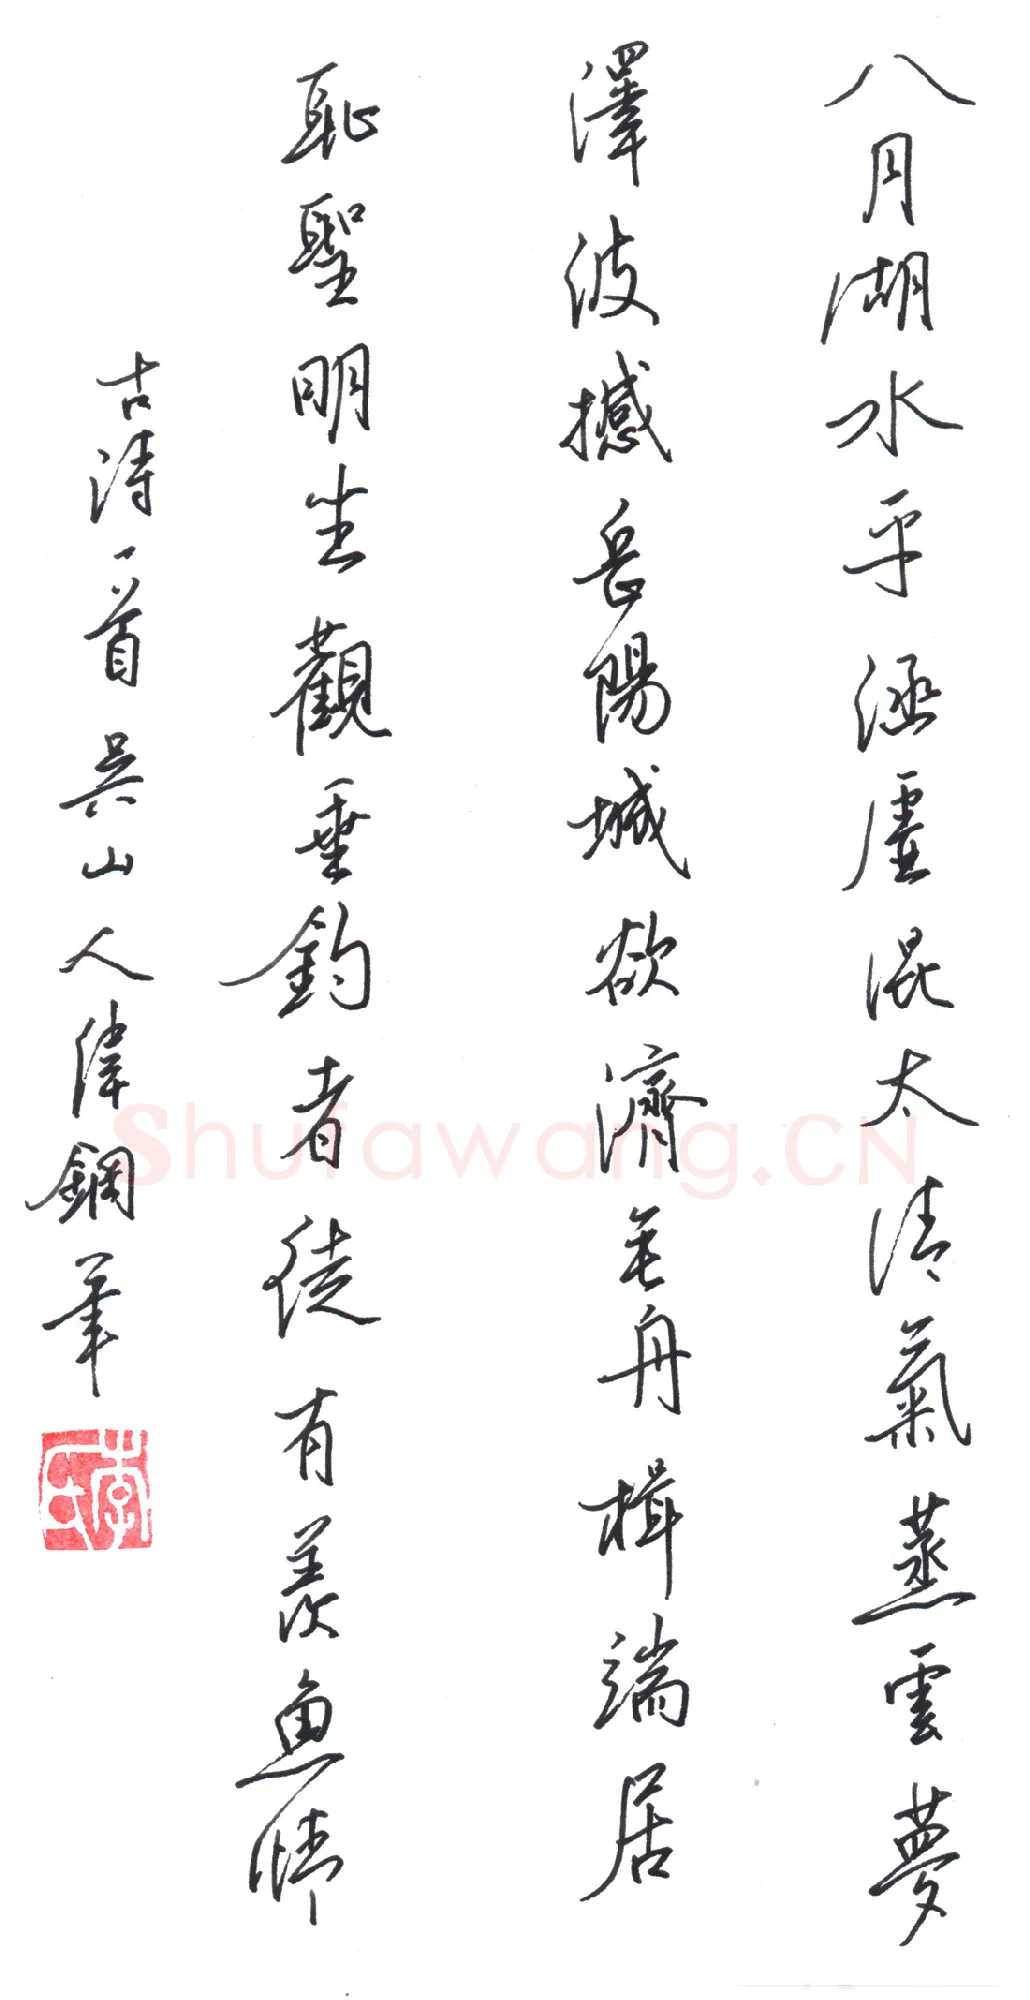 八月湖水平涵虛混太清氣蒸雲夢
澤波撼岳陽城欲濟無舟楫端居
恥聖明坐觀垂釣者徒有羨魚情
古詩一首吳山人偉鋼筆
李氏
Shufawang.CN